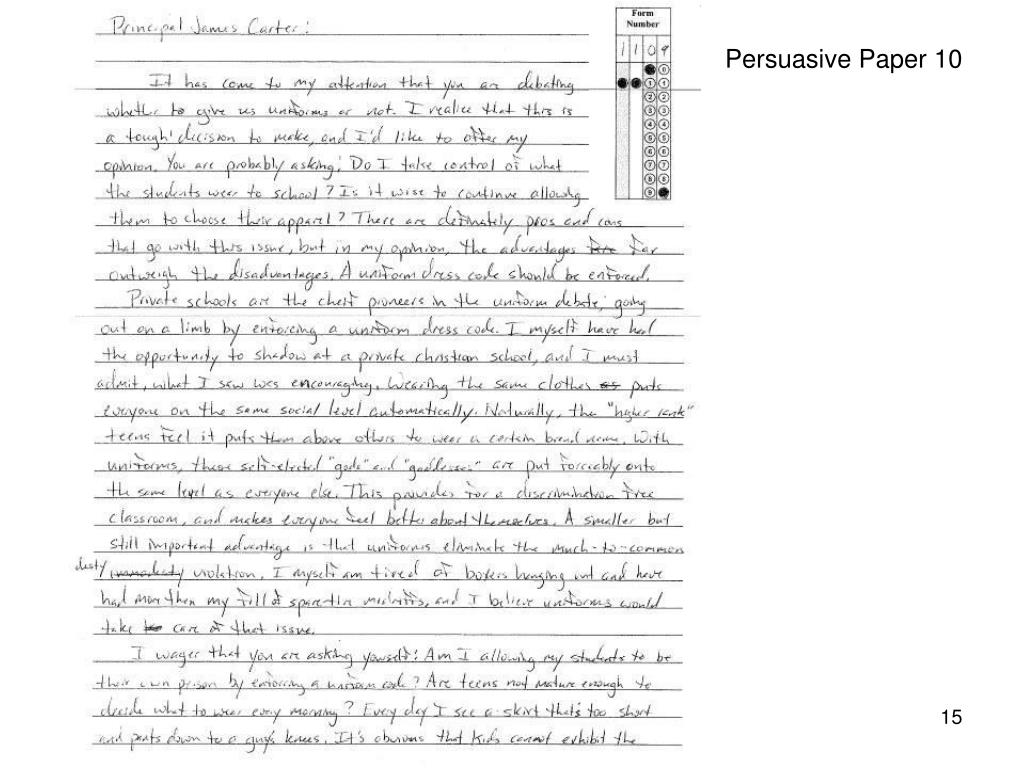 Principal James Carter:
Form
Number
1 1 0 9
Persuasive Paper 10
It has come to my attention that you are debating
whether to give us uniforms or not. I realize that this is
a tough decision to make, and I'd like to offer my
opinion. You are probably asking: Do I take control of what
the students wear to school? Is it wise to continue allowing
them to choose their apparel? There are definately pros and cons
that go with this issue, but in my opinion, the advantages far
outweigh the disadvantages. A uniform dress code should be enforced.
Private schools are the cheif pioneers in the uniform debate; going
out on a limb by enforcing a uniform dress code. I myself have had
the opportunity to shadow at a private christian school, and I must
admit, what I saw was encouraging. Wearing the same clothes puts
everyone on the same social level automatically. Naturally, the "higher rank"
teens feel it puts them above others to wear a certain brand name. With
uniforms, these self-elected "gods" and "goddesses" are put forceably onto
the same level as everyone else. This provides for a discrimination free
classroom, and makes everyone feel better about themselves. A smaller but
still important advantage is that uniforms eliminate the much-to-common
desty violation. I myself am tired of boxers hanging out and have
had more then my fill of spare-tire midriffs, and I believe uniforms would
take care of that issue.
I wager that you are asking yourself: Am I allowing my students to be
their own person by enforcing a uniform code? Are teens not mature enough to
decide what to wear every morning? Every day I see a skirt that's too short
and pants down to a guy's knees. It's obvious that kids cannot exhibit the
15